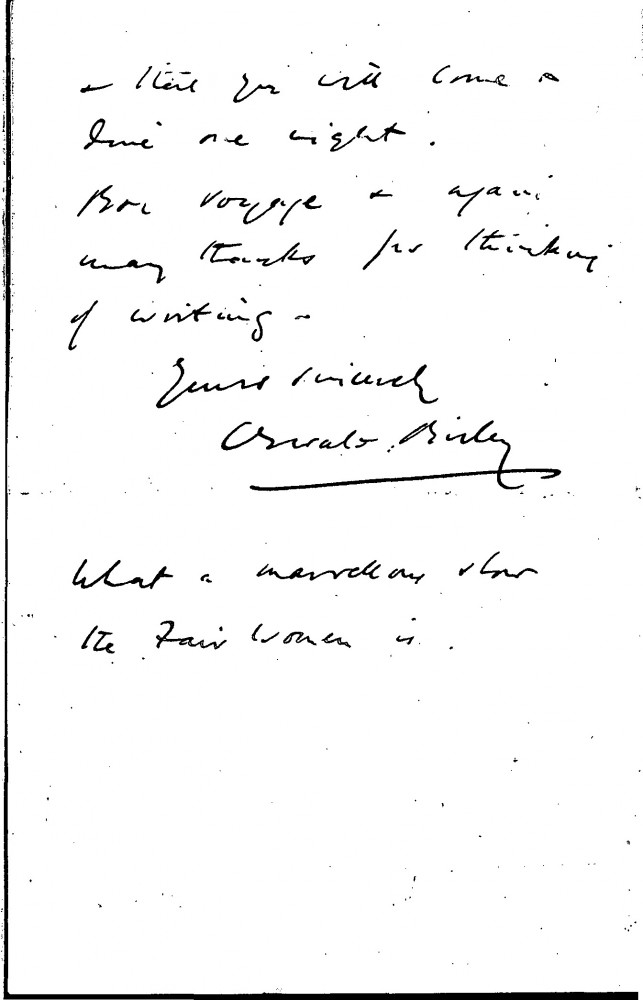 & that you will come &
dine one night.
Bon voyage & again
many thanks for thinking
of writing -
Yours sincerely
Oswald Birley
What a marvellous show
the Fair Women is.